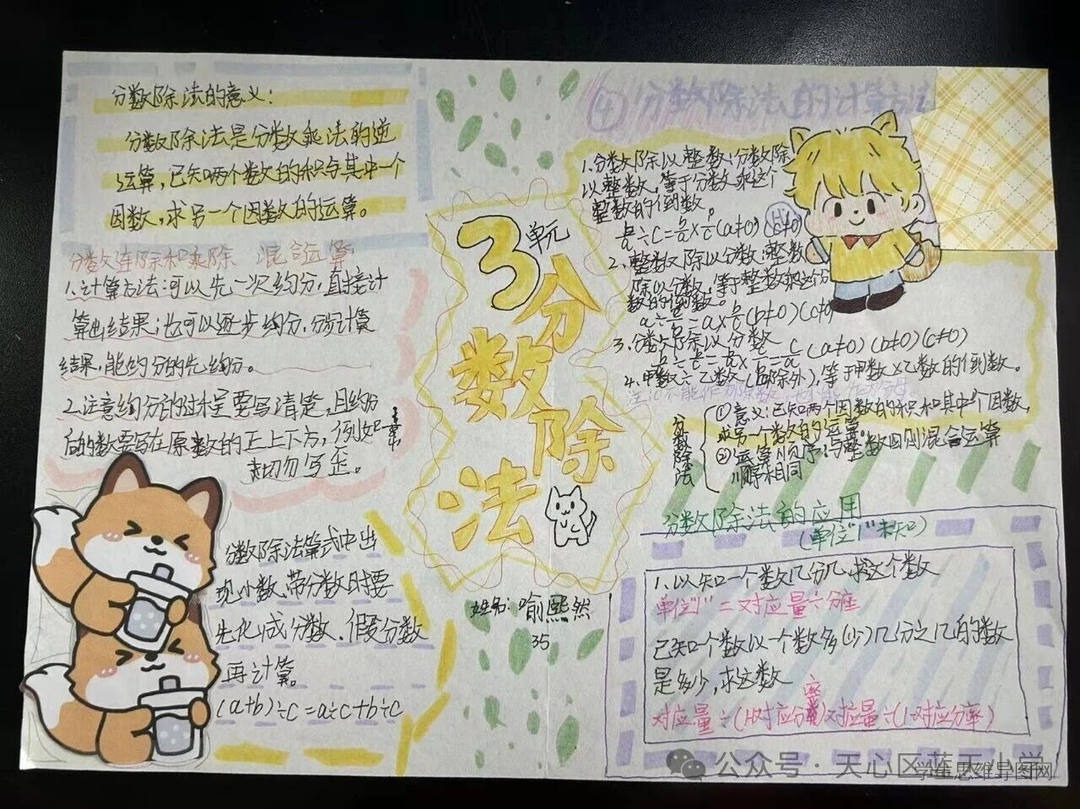 分数除法的意义:
分数除法是分数乘法的逆
运算,已知两个数的积与其中一个
因数,求另一个因数的运算。
分数连除和乘除 混合运算
1.计算方法:可以先一次约分,直接计
算出结果;也可以逐步约分,分步计算
结果,能约分的先约分。
2.注意约分的过程要写清楚,且约分
后的数要写在原数的正上下方,例如
切勿写歪。
分数除法算式中出
现小数、带分数时要
先化成分数、假分数
再计算。
(a+b)÷c=a÷c+b÷c
3单元
分
数
除
法
姓名:喻熙然
35
④分数除法的计算方法
1.分数除以整数:分数除
以整数,等于分数乘这个
整数的倒数。
2.整数除以分数:整数
除以分数,等于整数乘这个分
数的倒数。
3.分数除以分数
(a≠0)(b≠0)(c≠0)
4.甲数÷乙数(0除外),等于甲数×乙数的倒数。
分数除法
①意义:已知两个因数的积和其中一个因数,
求另一个数的运算。
②运算顺序:与整数四则混合运算
顺序相同
分数除法的应用
(单位"1"未知)
1.以知一个数几分几,求这个数
单位"1"=对应量÷分率
已知个数以一个数多(少)几分之几的数
是多少,求这数
对应量÷(1+对应分率)对应量÷(1-对应分率)
公众号·天心区蓝天小学
学生思维导图网